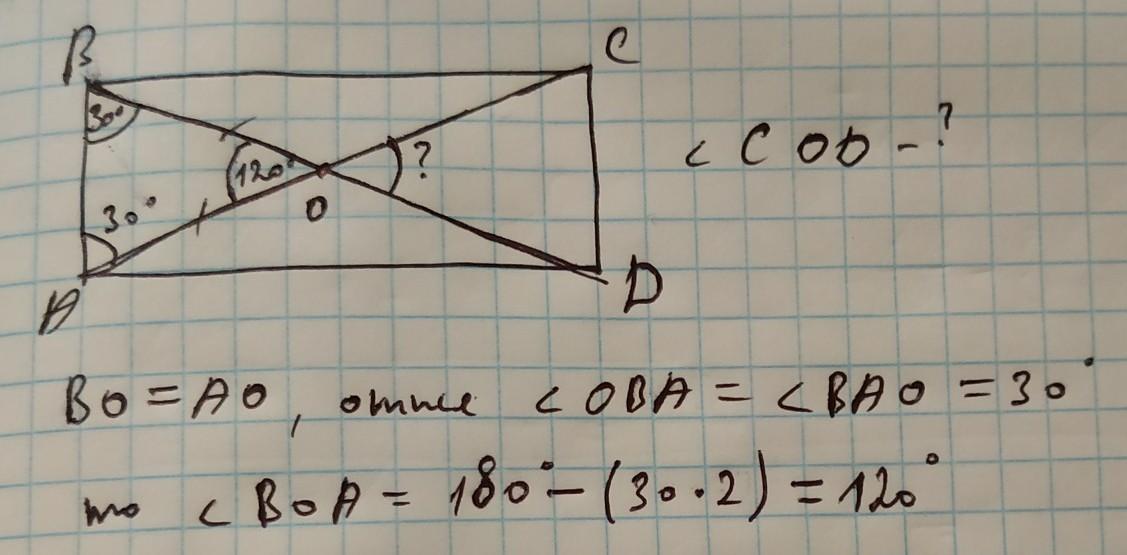 B
C
30°
120°
?
< COD - ?
O
30°
A
D
BO = AO, отже < OBA = < BAO = 30°
то < BOA = 180° - (30 · 2) = 120°